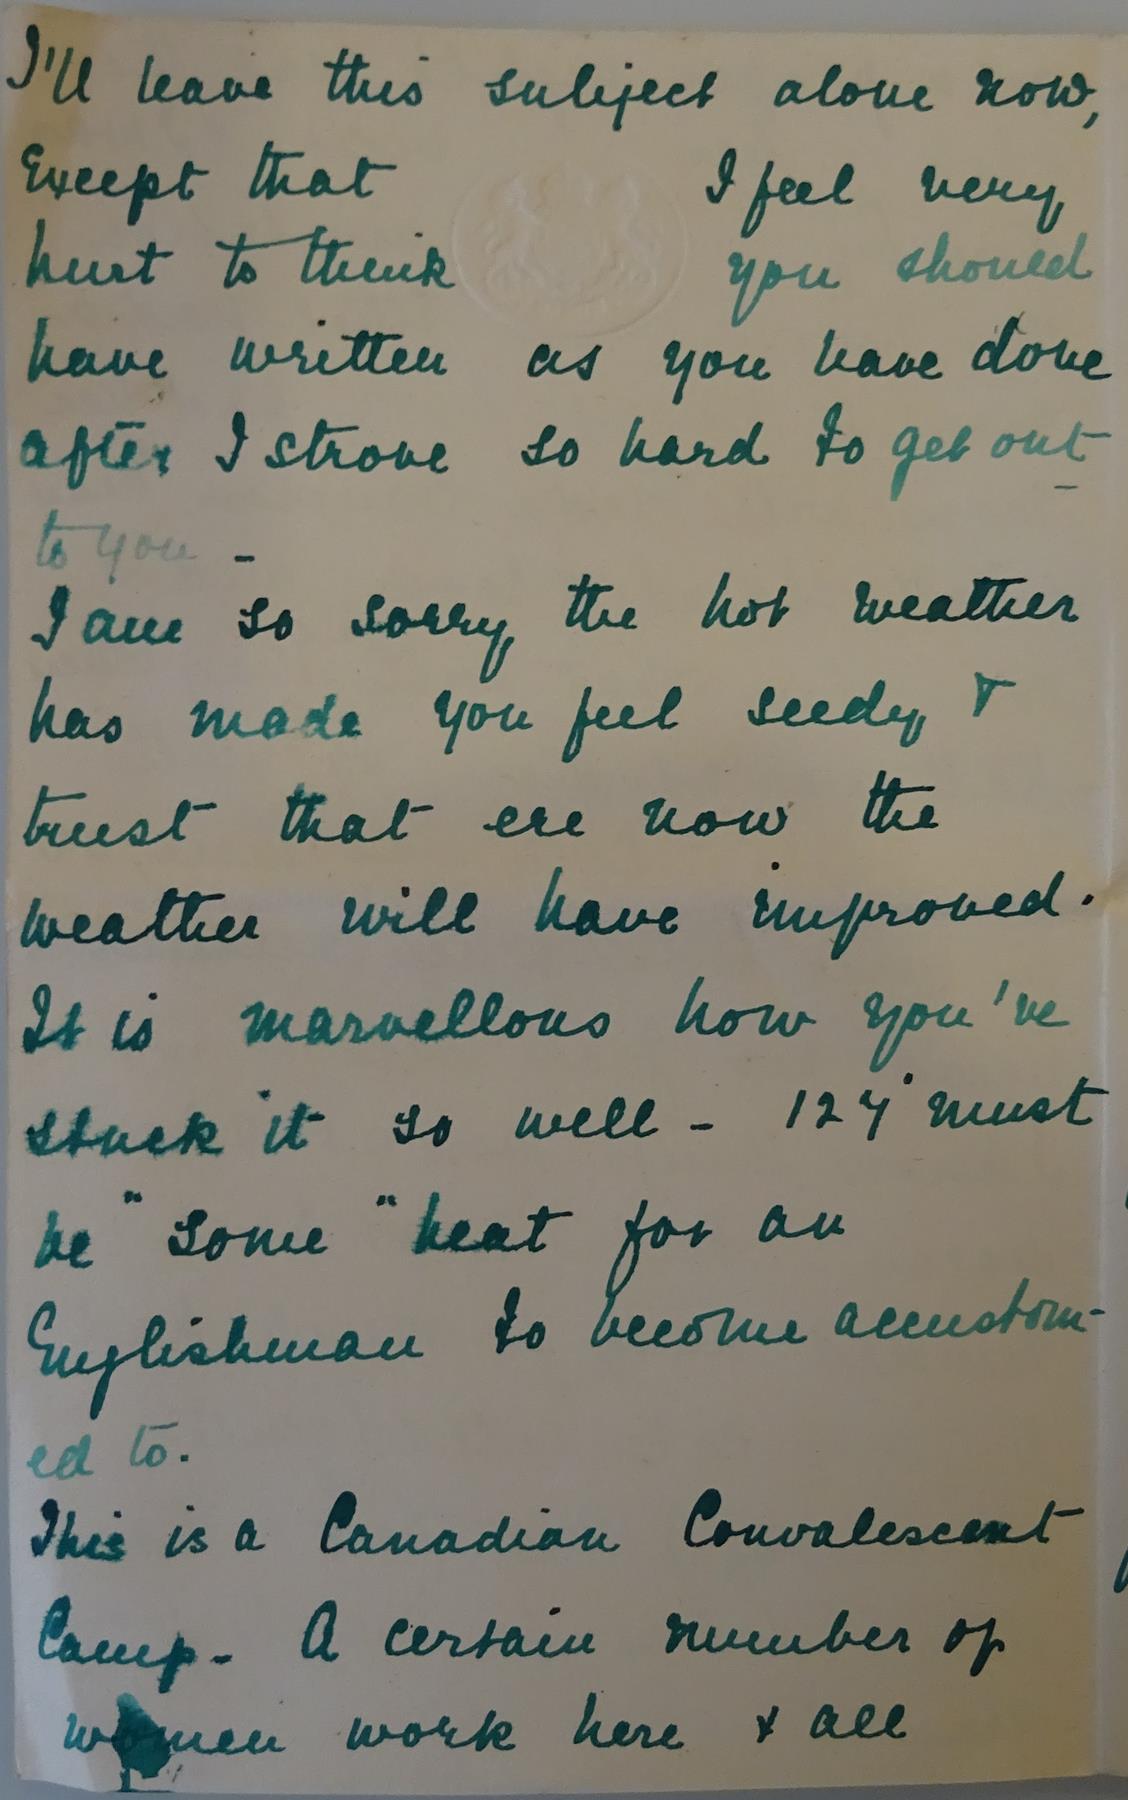 I'll leave this subject alone now,
Except that I feel very
hurt to think you should
have written as you have done
after I strove so hard to get out
to you -
I am so sorry the hot weather
has made you feel seedy &
trust that ere now the
weather will have improved.
It is marvellous how you've
stuck it so well - 127° must
be "some" heat for an
Englishman to become accustom-
ed to.
This is a Canadian Convalescent
Camp - A certain number of
women work here & all